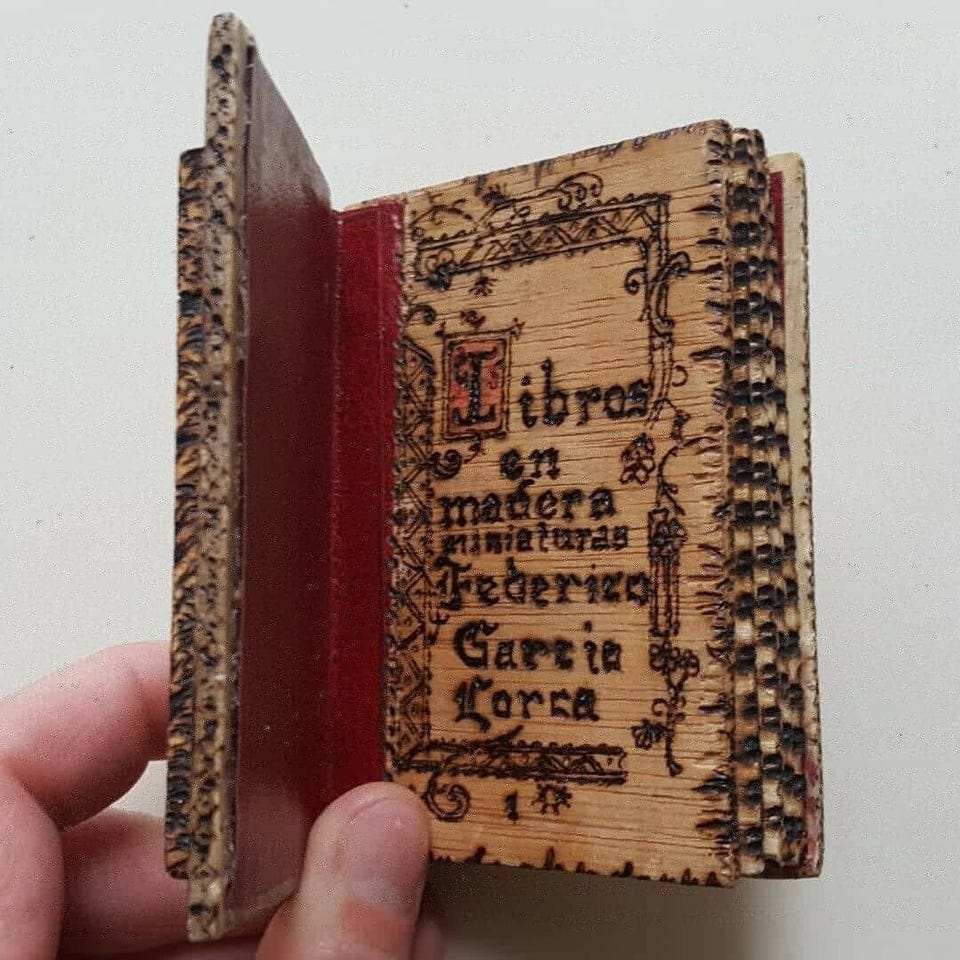 Libros
en
madera
miniaturas
Federico
Garcia
Lorca
1